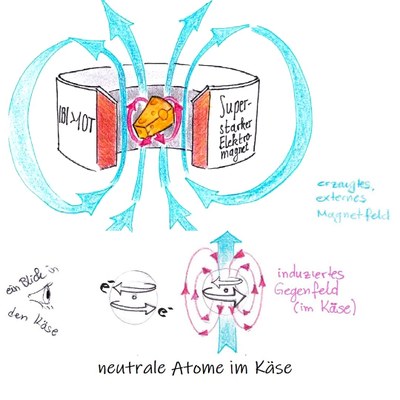 Super-
starker
Elektro
magnet
erzeugtes,
externes
Magnetfeld
ein Blick in
den Käse
e⁻
e⁻
induziertes
Gegenfeld
(im Käse)
neutrale Atome im Käse